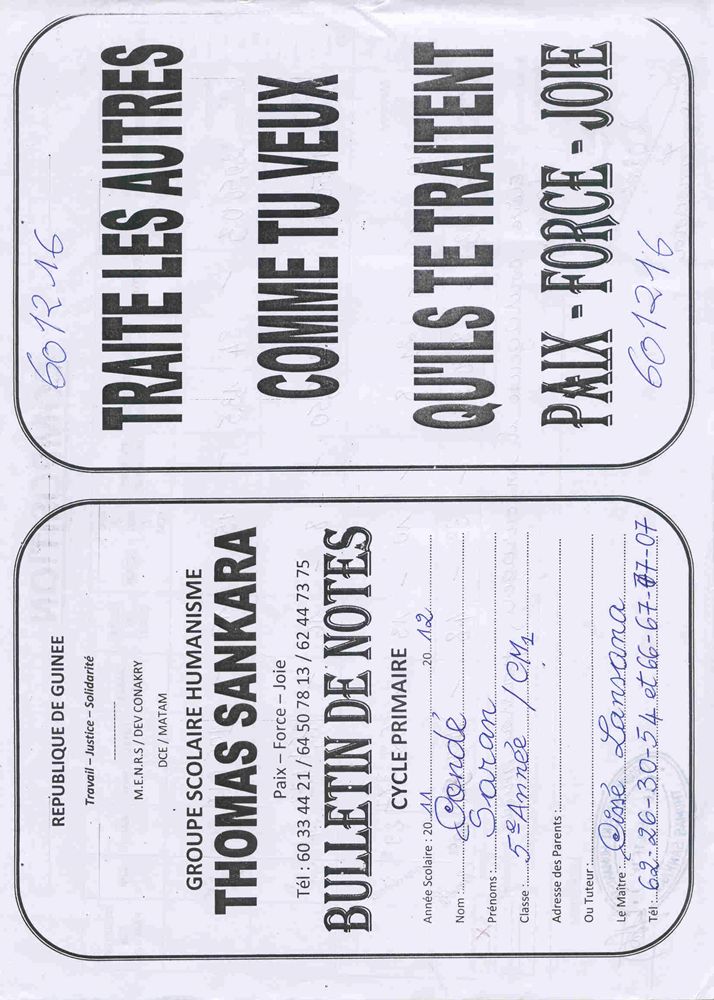 REPUBLIQUE DE GUINEE
Travail – Justice – Solidarité
M.E.N.R.S / DEV CONAKRY
DCE / MATAM
GROUPE SCOLAIRE HUMANISME
THOMAS SANKARA
Paix – Force – Joie
Tél : 60 33 44 21 / 64 50 78 13 / 62 44 73 75
BULLETIN DE NOTES
CYCLE PRIMAIRE
Année Scolaire : 20 11 20 12
Nom : Condé
Prénoms : Saran
Classe : 5e Année / CM1
Adresse des Parents :
Ou Tuteur :
Le Maître : Cissé Lansana
Tél : 62-26-30-54 et 66-67-07-07
601216
TRAITE LES AUTRES
COMME TU VEUX
QU'ILS TE TRAITENT
PAIX - FORCE - JOIE
601216